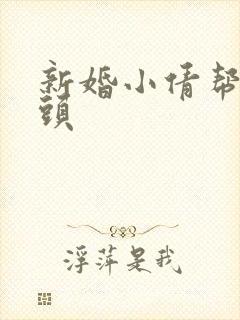 新婚小倩帮
頭
浮萍是我